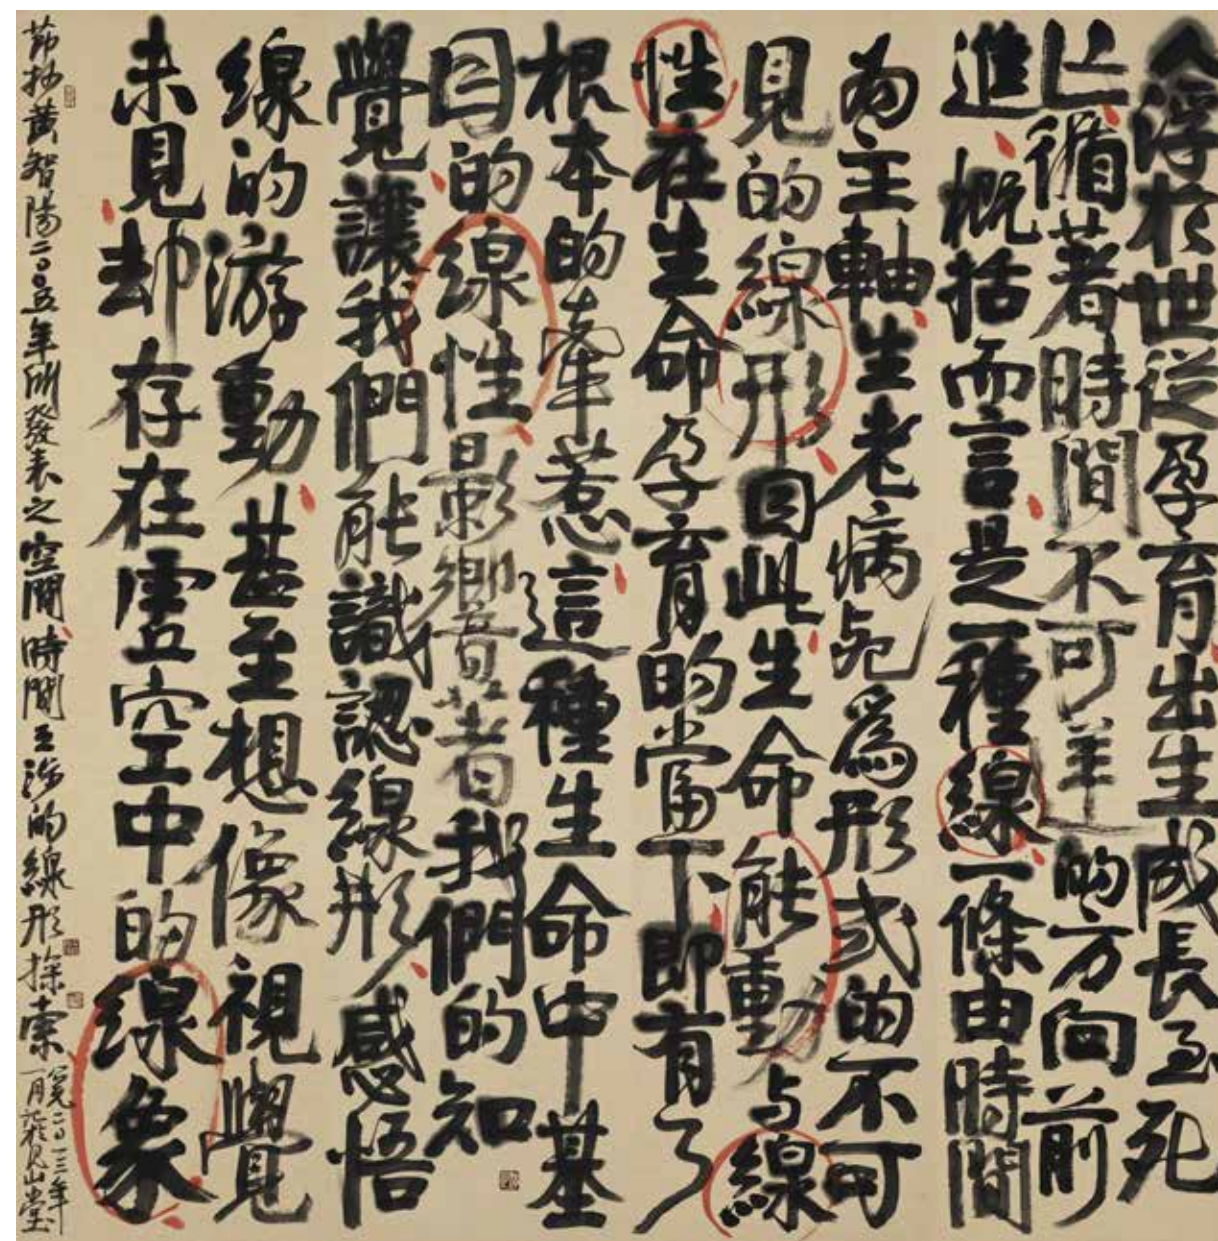 人浮於世從孕育出生成長至死
亡循著時間不可逆的方向前
進概括而言是一種線一條由時間
為主軸生老病死爲形式的不可
見的線形因此生命能動与線
性在生命孕育的當下即有了
根本的牽惹這種生命中基
因的線性影響著我們的知
覺讓我們能識認線形感悟
線的游動甚至想像視覺
未見却存在虛空中的線象
節抄黃智陽二〇〇五年所發表之空間時間互涉的線形探索
公元二〇一三年
一月於見山堂